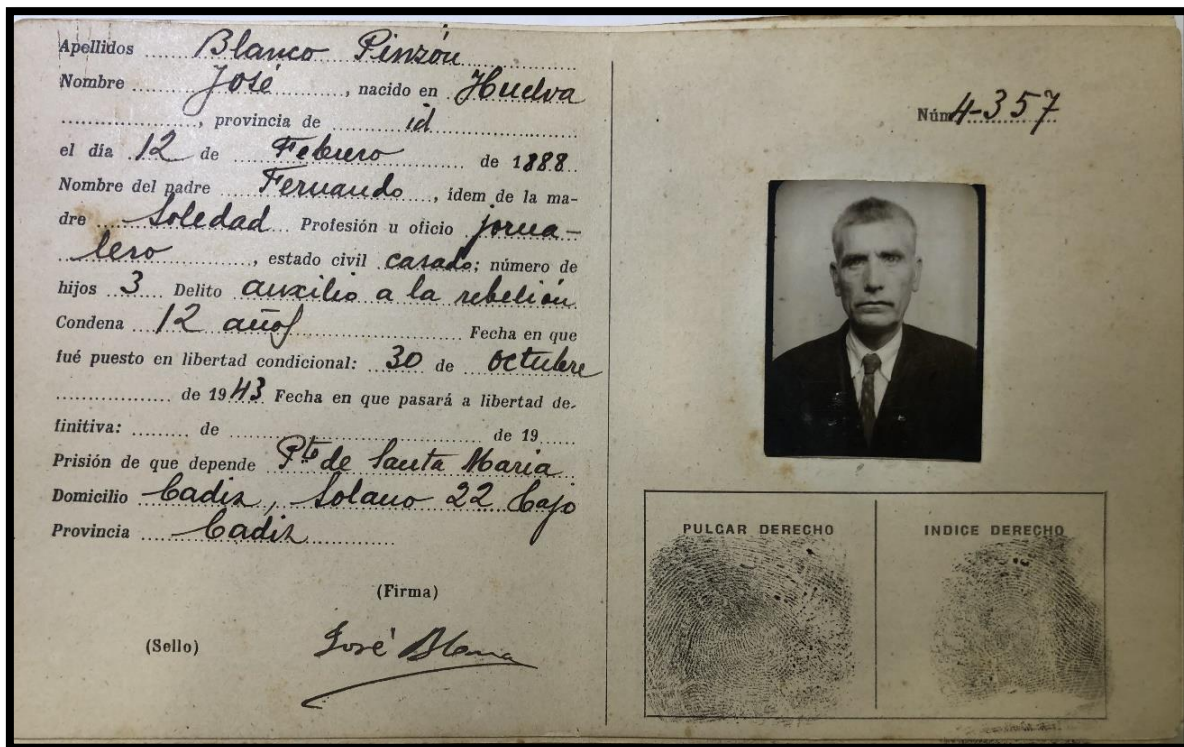 Apellidos Blanco Pinzón
Nombre José, nacido en Huelva
, provincia de id
el día 12 de Febrero de 1888
Nombre del padre Fernando, ídem de la ma-
dre Soledad Profesión u oficio jorna-
lero, estado civil casado; número de
hijos 3 Delito auxilio a la rebelión
Condena 12 años Fecha en que
fué puesto en libertad condicional: 30 de octubre
de 1943 Fecha en que pasará a libertad de-
finitiva: de de 19
Prisión de que depende Pto de Santa Maria
Domicilio Cadiz, Solano 22 bajo
Provincia Cadiz
(Firma)
(Sello) José Blanco
Núm 4-357
PULGAR DERECHO INDICE DERECHO